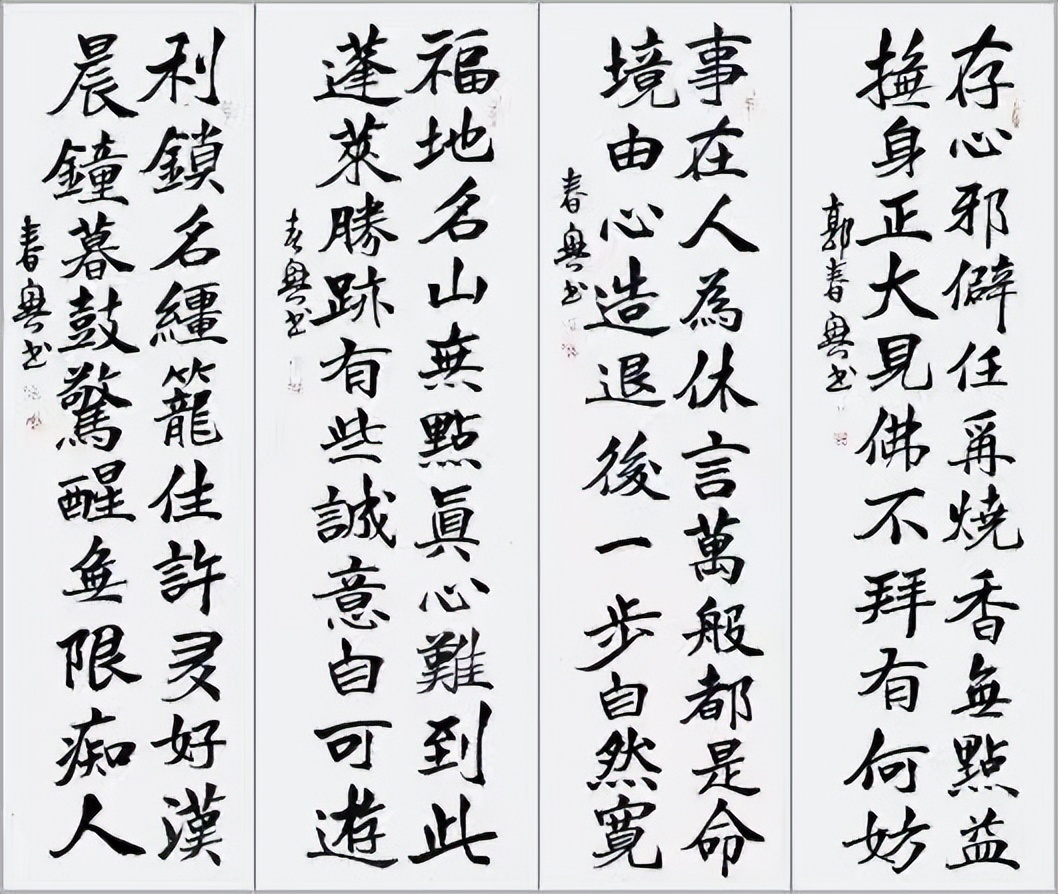 存心邪僻任爾燒香無點益
撫身正大見佛不拜有何妨
郭春興书
事在人為休言萬般都是命
境由心造退後一步自然寬
春興书
福地名山無點眞心難到此
蓬萊勝跡有些誠意自可遊
春興书
利鎖名繮籠住許多好漢
晨鐘暮鼓驚醒無限痴人
春興书